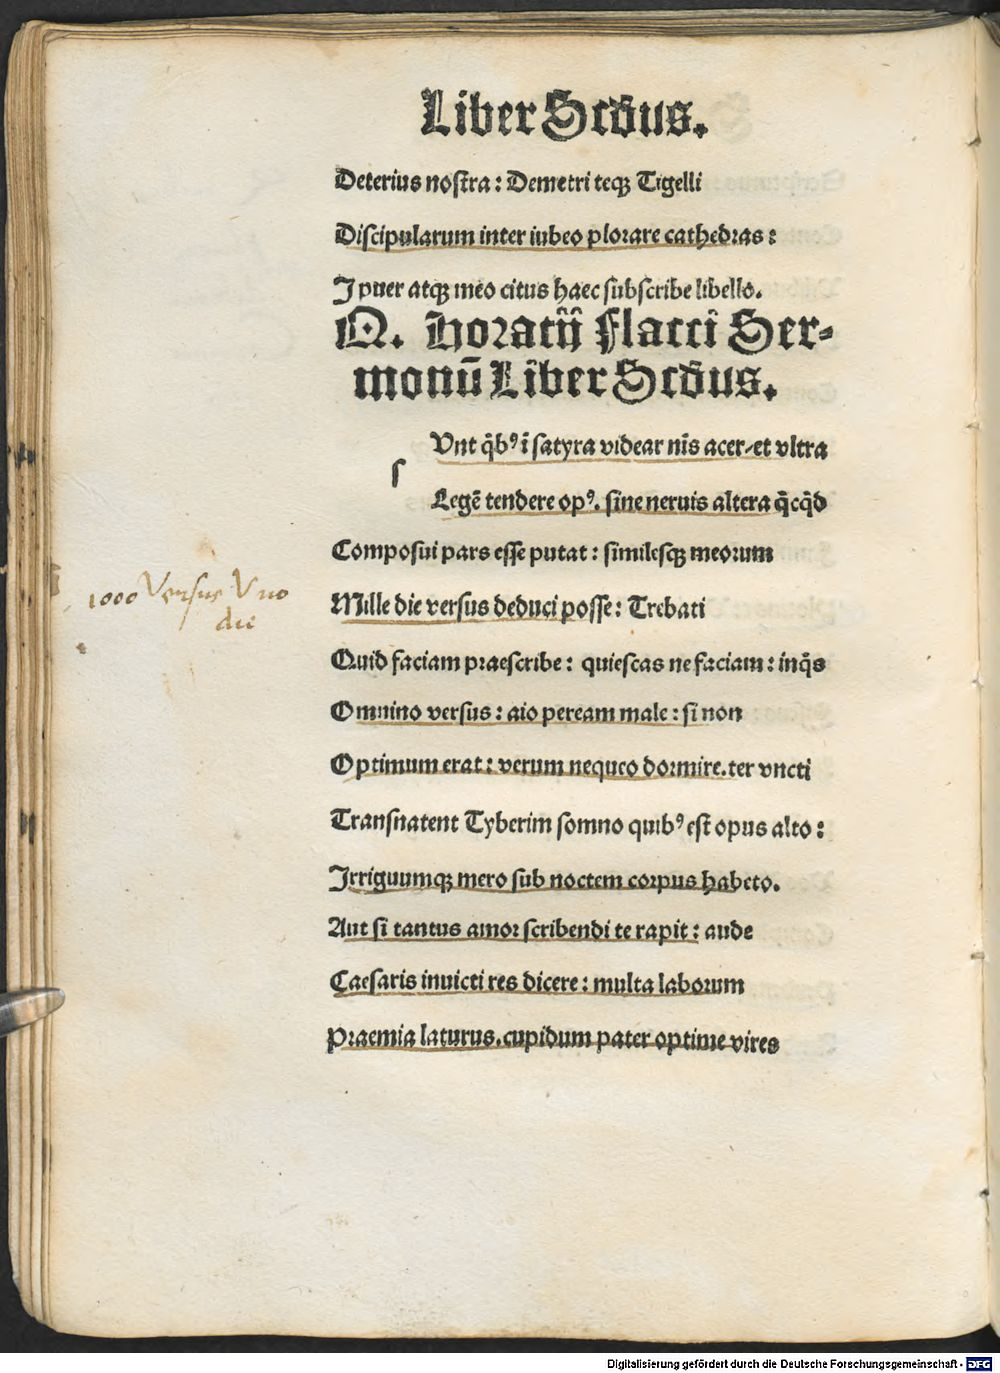 Liber Scd̄us.
Deterius nostra: Demetri teqꝫ Tigelli
Discipularum inter iubeo plorare cathedras:
I puer atqꝫ meo citus haec subscribe libello.
Q. Horatij Flacci Ser-
monū Liber Scd̄us.
Vnt q̄bꝰ ī satyra videar nīs acer-et vltra
s
Legē tendere opꝰ. sine neruis altera q̄cq̄d
Composui pars esse putat: similesqꝫ meorum
1000 Versus Vno
die
Mille die versus deduci posse: Trebati
Quid faciam praescribe: quiescas ne faciam: inq̄s
Omnino versus: aio peream male: si non
Optimum erat: verum nequeo dormire. ter vncti
Transnatent Tyberim somno quibꝰ est opus alto:
Irriguumqꝫ mero sub noctem corpus habeto.
Aut si tantus amor scribendi te rapit: aude
Caesaris inuicti res dicere: multa laborum
Praemia laturus. cupidum pater optime vires
Digitalisierung gefördert durch die Deutsche Forschungsgemeinschaft - DFG